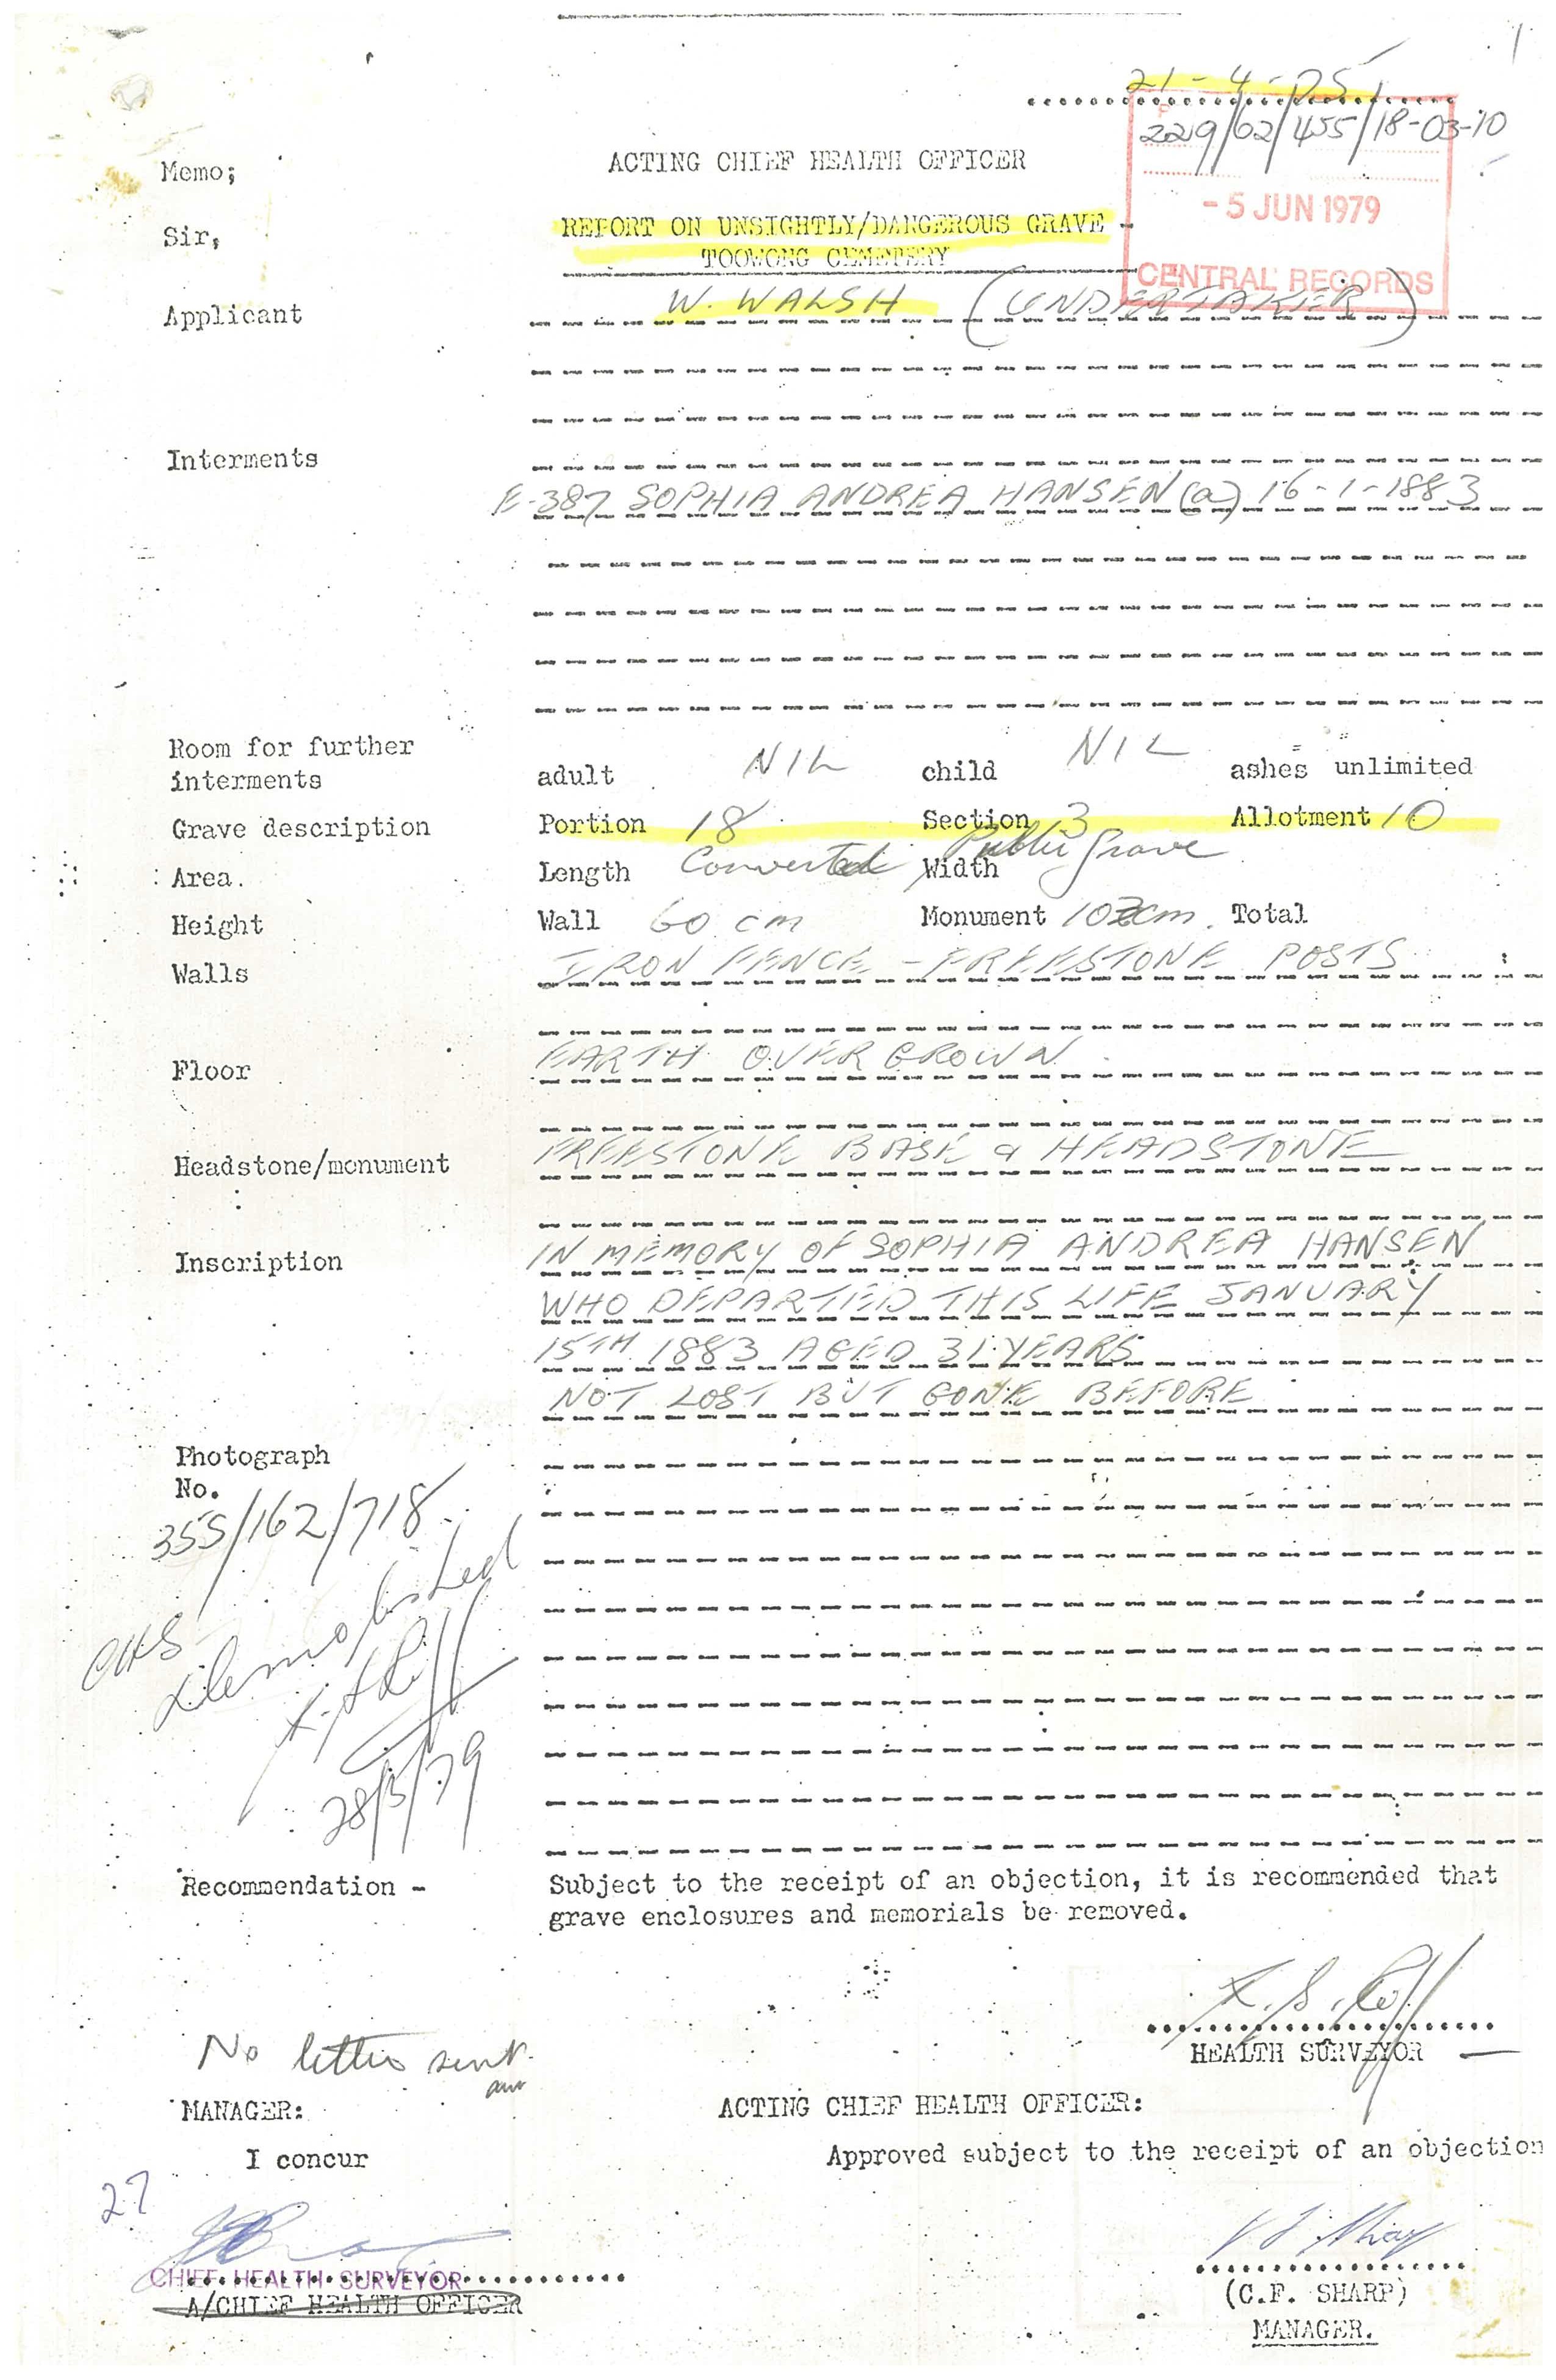 21-4-75
229/62/455/18-03-10
Memo; ACTING CHIEF HEALTH OFFICER
- 5 JUN 1979
Sir, REPORT ON UNSIGHTLY/DANGEROUS GRAVE -
TOOWONG CEMETERY
CENTRAL RECORDS
Applicant W. WALSH (UNDERTAKER)
Interments
E-387 SOPHIA ANDREA HANSEN (a) 16-1-1883
Room for further
interments adult NIL child NIL ashes unlimited
Grave description Portion 18 Section 3 Allotment 10
Area. Length Converted Width Public Grave
Height Wall 60 cm Monument 102cm. Total
Walls IRON FENCE - FREESTONE POSTS
Floor EARTH OVERGROWN
Headstone/monument FREESTONE BASE & HEADSTONE
Inscription IN MEMORY OF SOPHIA ANDREA HANSEN
WHO DEPARTED THIS LIFE JANUARY
15TH 1883 AGED 31 YEARS
NOT LOST BUT GONE BEFORE
Photograph
No.
355/162/718
CHS
demolished
28/5/79
Recommendation - Subject to the receipt of an objection, it is recommended that
grave enclosures and memorials be removed.
HEALTH SURVEYOR
No letters sent.
MANAGER: ACTING CHIEF HEALTH OFFICER:
I concur Approved subject to the receipt of an objection
27
CHIEF HEALTH SURVEYOR
A/CHIEF HEALTH OFFICER
(C.F. SHARP)
MANAGER.